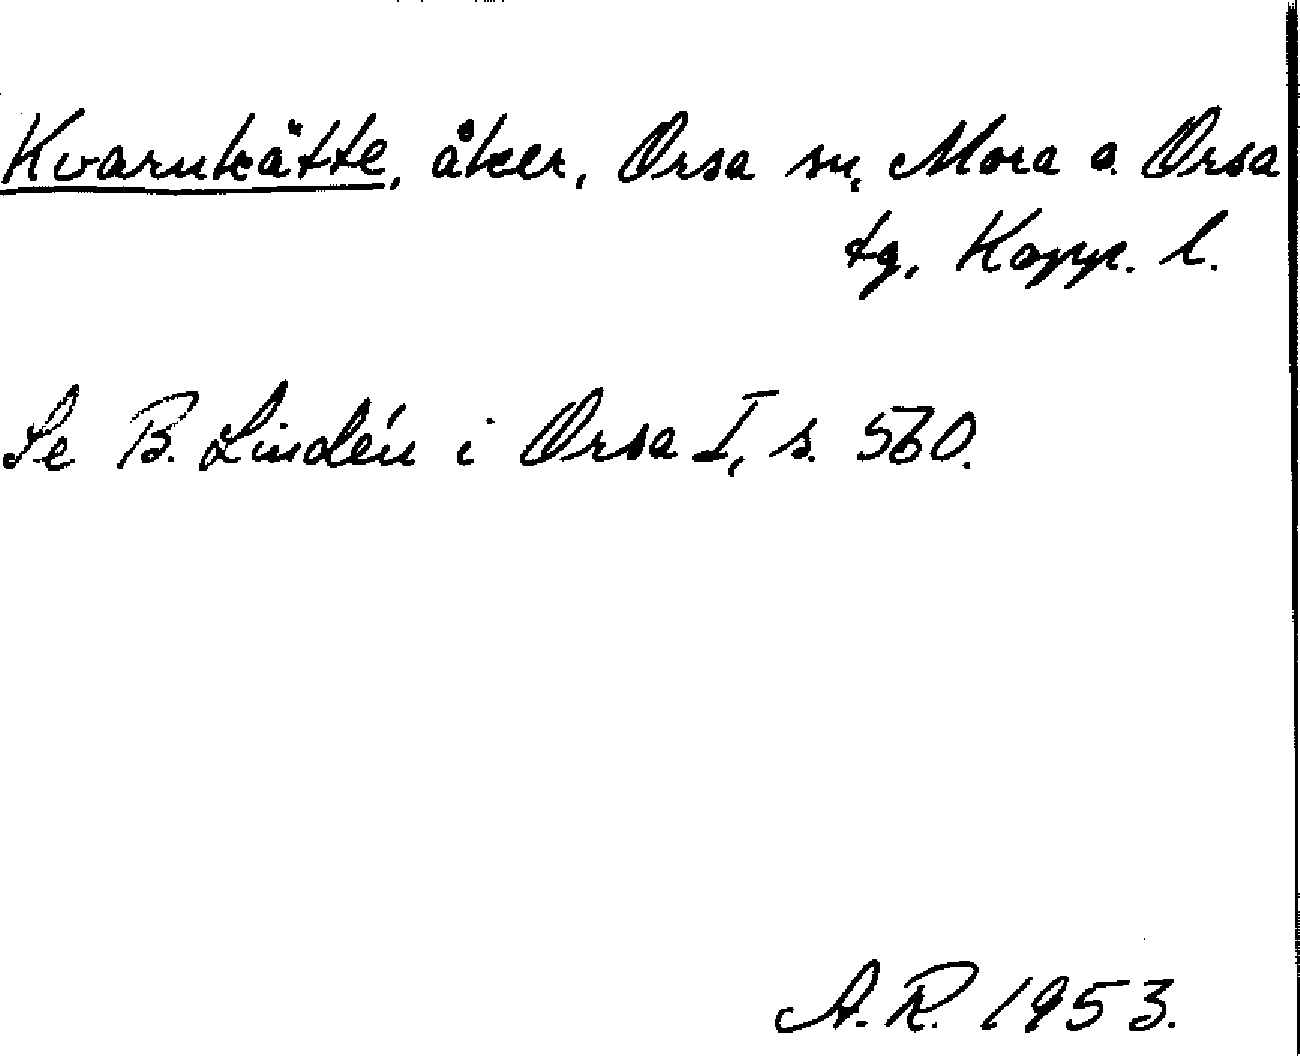 Kvarnkätte, åker, Orsa sn, Mora o. Orsa
tg, Kopp. l.
Se B. Lindén i Orsa I, s. 560.
A.R. 1953.